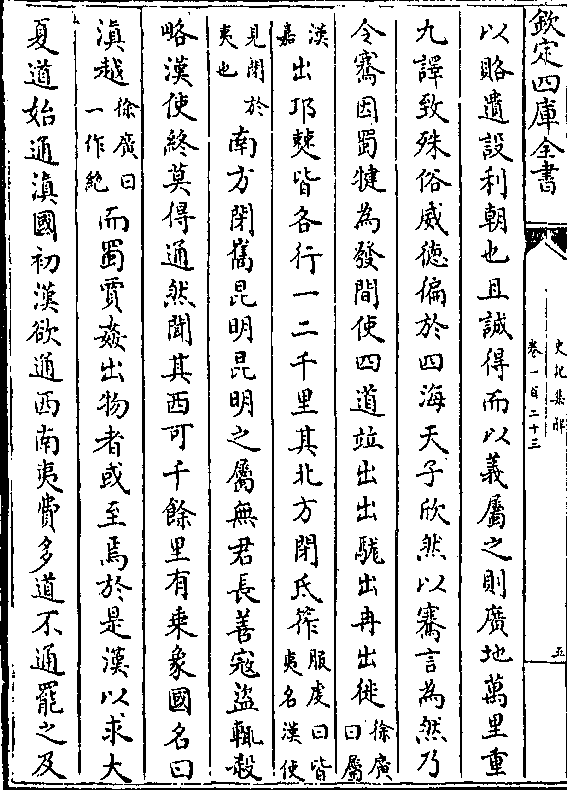 欽定四庫全書
史記集解
卷一百二十三
五
以賂遺設利朝也且誠得而以義屬之則廣地萬里重
九譯致殊俗威德徧於四海天子欣然以騫言為然乃
令騫因蜀犍為發間使四道竝出出駹出冉出徙徐廣曰屬
漢嘉出邛僰皆各行一二千里其北方閉氐筰服虔曰皆夷名漢使
見閉於夷也南方閉嶲昆明昆明之屬無君長善寇盜輒殺
略漢使終莫得通然聞其西可千餘里有乗象國名曰
滇越徐廣曰一作絶而蜀賈姦出物者或至焉於是漢以求大
夏道始通滇國初漢欲通西南夷費多道不通罷之及